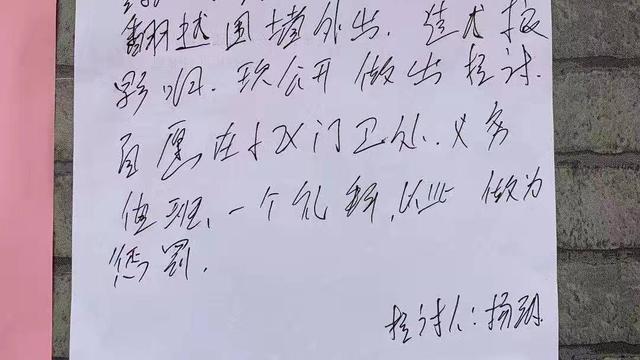 翻越围墙外出.造大极
影响.现公开做出检讨.
自愿在小区门卫处.义务
值班,一个礼拜,以此做为
惩罚.
检讨人:杨